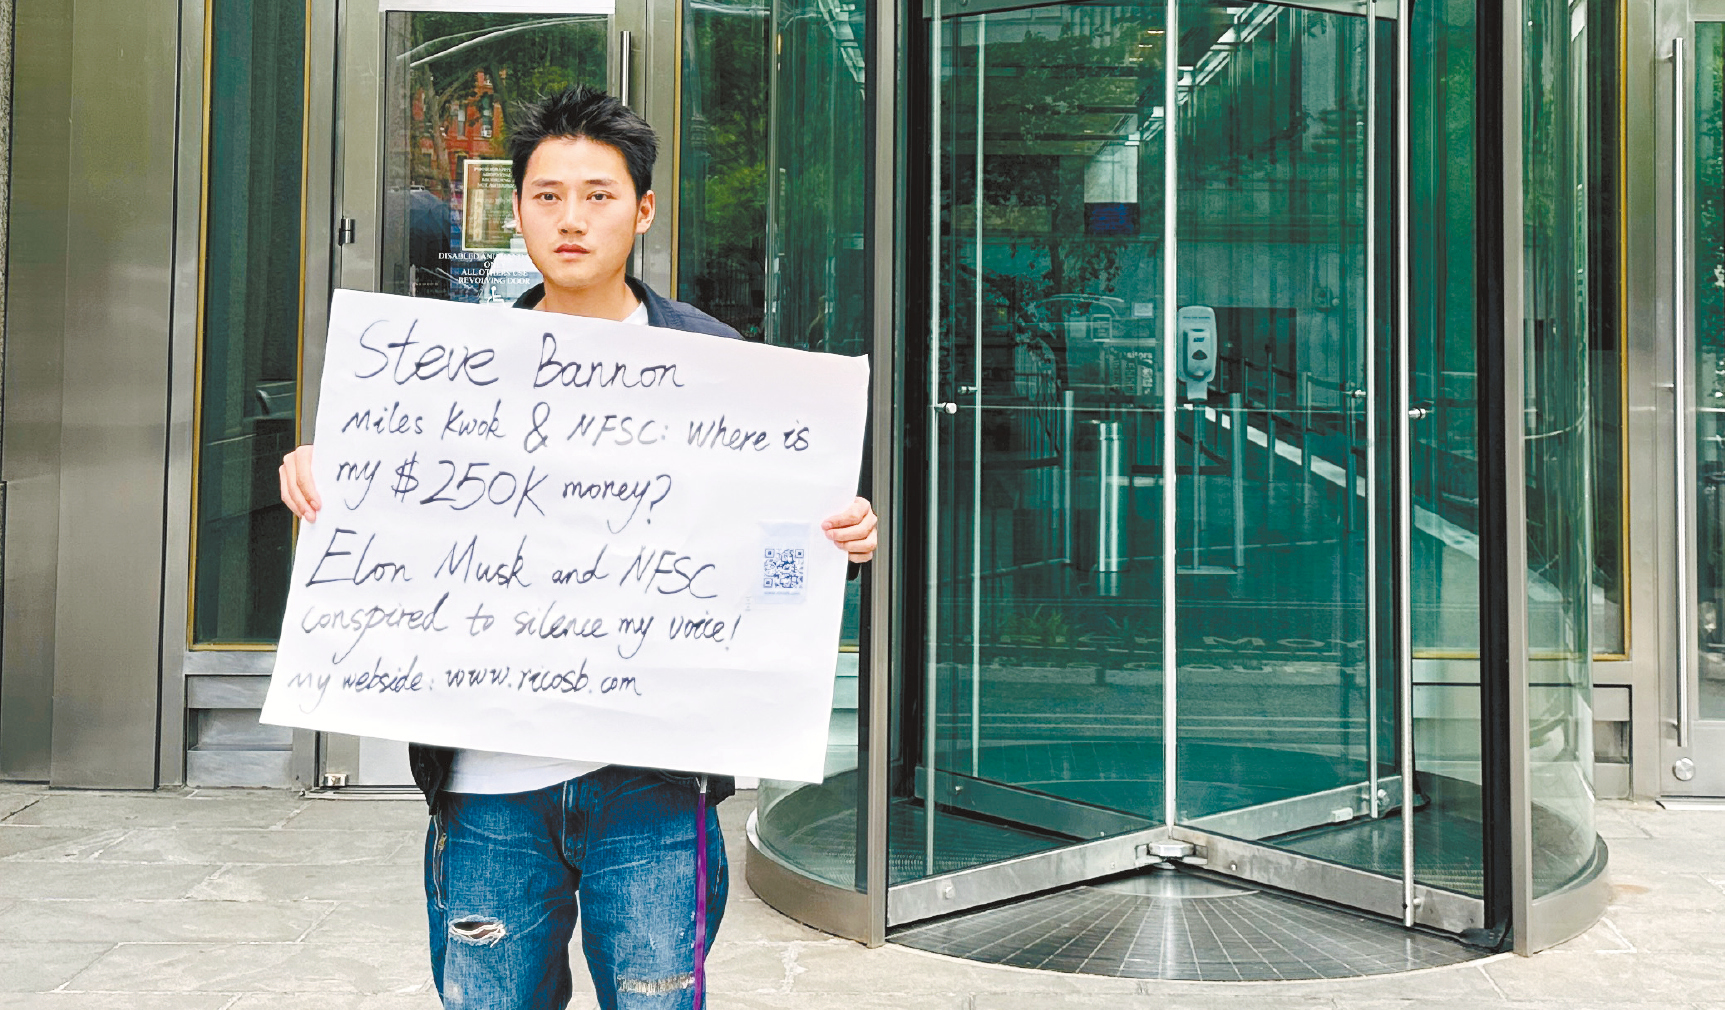 DISABLED AND
ALL OTHERS USE
REVOLVING DOOR
Steve Bannon
Miles Kwok & NFSC: Where is
my $250K money?
Elon Musk and NFSC
conspired to silence my voice!
my webside: www.ricosb.com